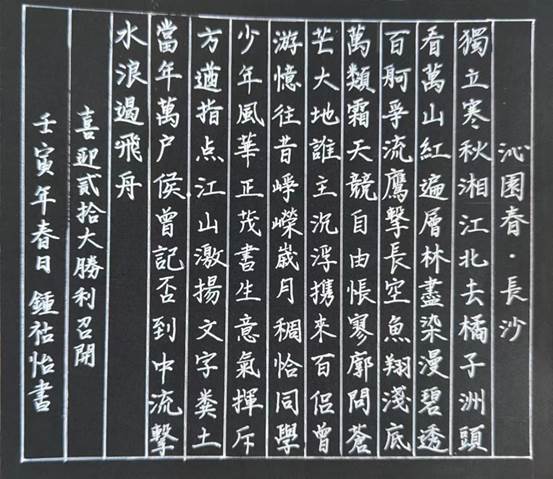 沁園春·長沙
獨立寒秋湘江北去橘子洲頭
看萬山紅遍層林盡染漫碧透
百舸爭流鷹擊長空魚翔淺底
萬類霜天競自由悵寥廓問蒼
芒大地誰主沉浮携來百侣曾
游憶往昔崢嶸歲月稠恰同學
少年風華正茂書生意氣揮斥
方遒指点江山激揚文字糞土
當年萬户侯曾記否到中流擊
水浪遏飛舟
喜迎貳拾大勝利召開
壬寅年春日 鍾祜怡書